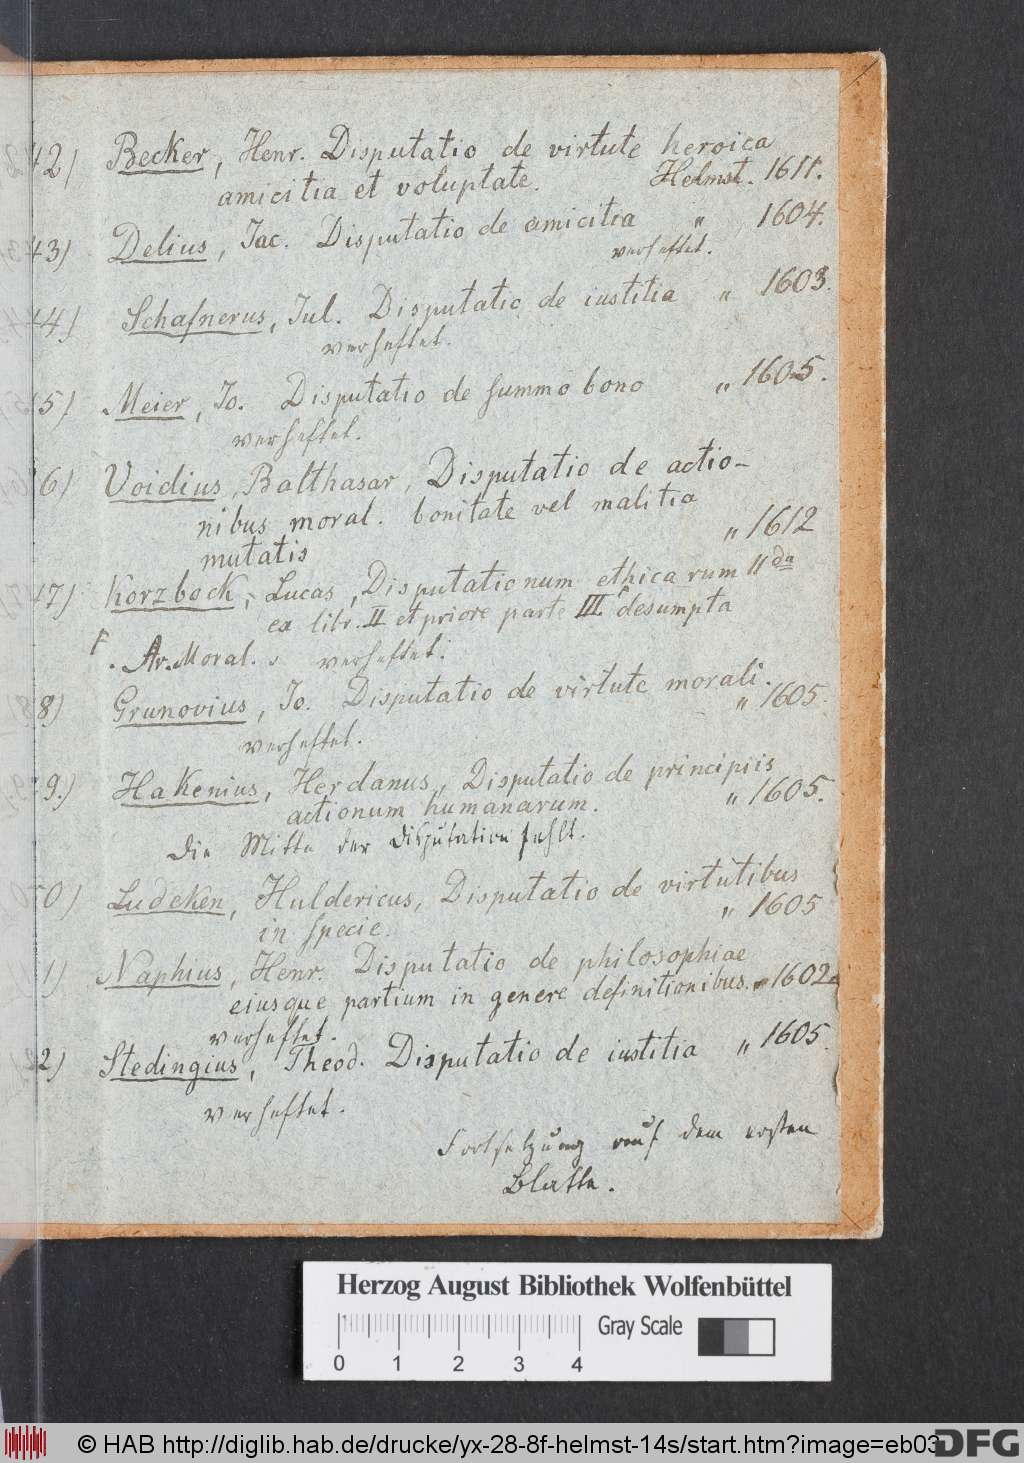 42) Becker, Henr. Disputatio de virtute heroica
amicitia et voluptate. Helmst. 1611.
43) Delius, Jac. Disputatio de amicitia " 1604.
verheftet.
44) Schafnerus, Jul. Disputatio de iustitia " 1603.
verheftet.
5) Meier, Jo. Disputatio de summo bono " 1605.
verheftet.
6) Voidius, Balthasar, Disputatio de actio-
nibus moral. bonitate vel malitia
mutatis " 1612
47) Korzbock, Lucas, Disputationum ethicarum 11da
ex libr. II et priore parte III desumpta
Ar. Moral. verheftet.
8) Grunovius, Jo. Disputatio de virtute morali.
" 1605.
verheftet.
9.) Hakenius, Herdanus, Disputatio de principiis
actionum humanarum. " 1605.
Die Mitte der Disputation fehlt.
0) Ludeken, Huldericus, Disputatio de virtutibus
in specie. " 1605
1) Naphius, Henr. Disputatio de philosophiae
eiusque partium in genere definitionibus. " 1602
verheftet.
2) Stedingius, Theod. Disputatio de iustitia " 1605.
verheftet.
Fortsetzung auf dem ersten
Blatte.
Herzog August Bibliothek Wolfenbüttel
Gray Scale
0 1 2 3 4
© HAB http://diglib.hab.de/drucke/yx-28-8f-helmst-14s/start.htm?image=eb03
DFG